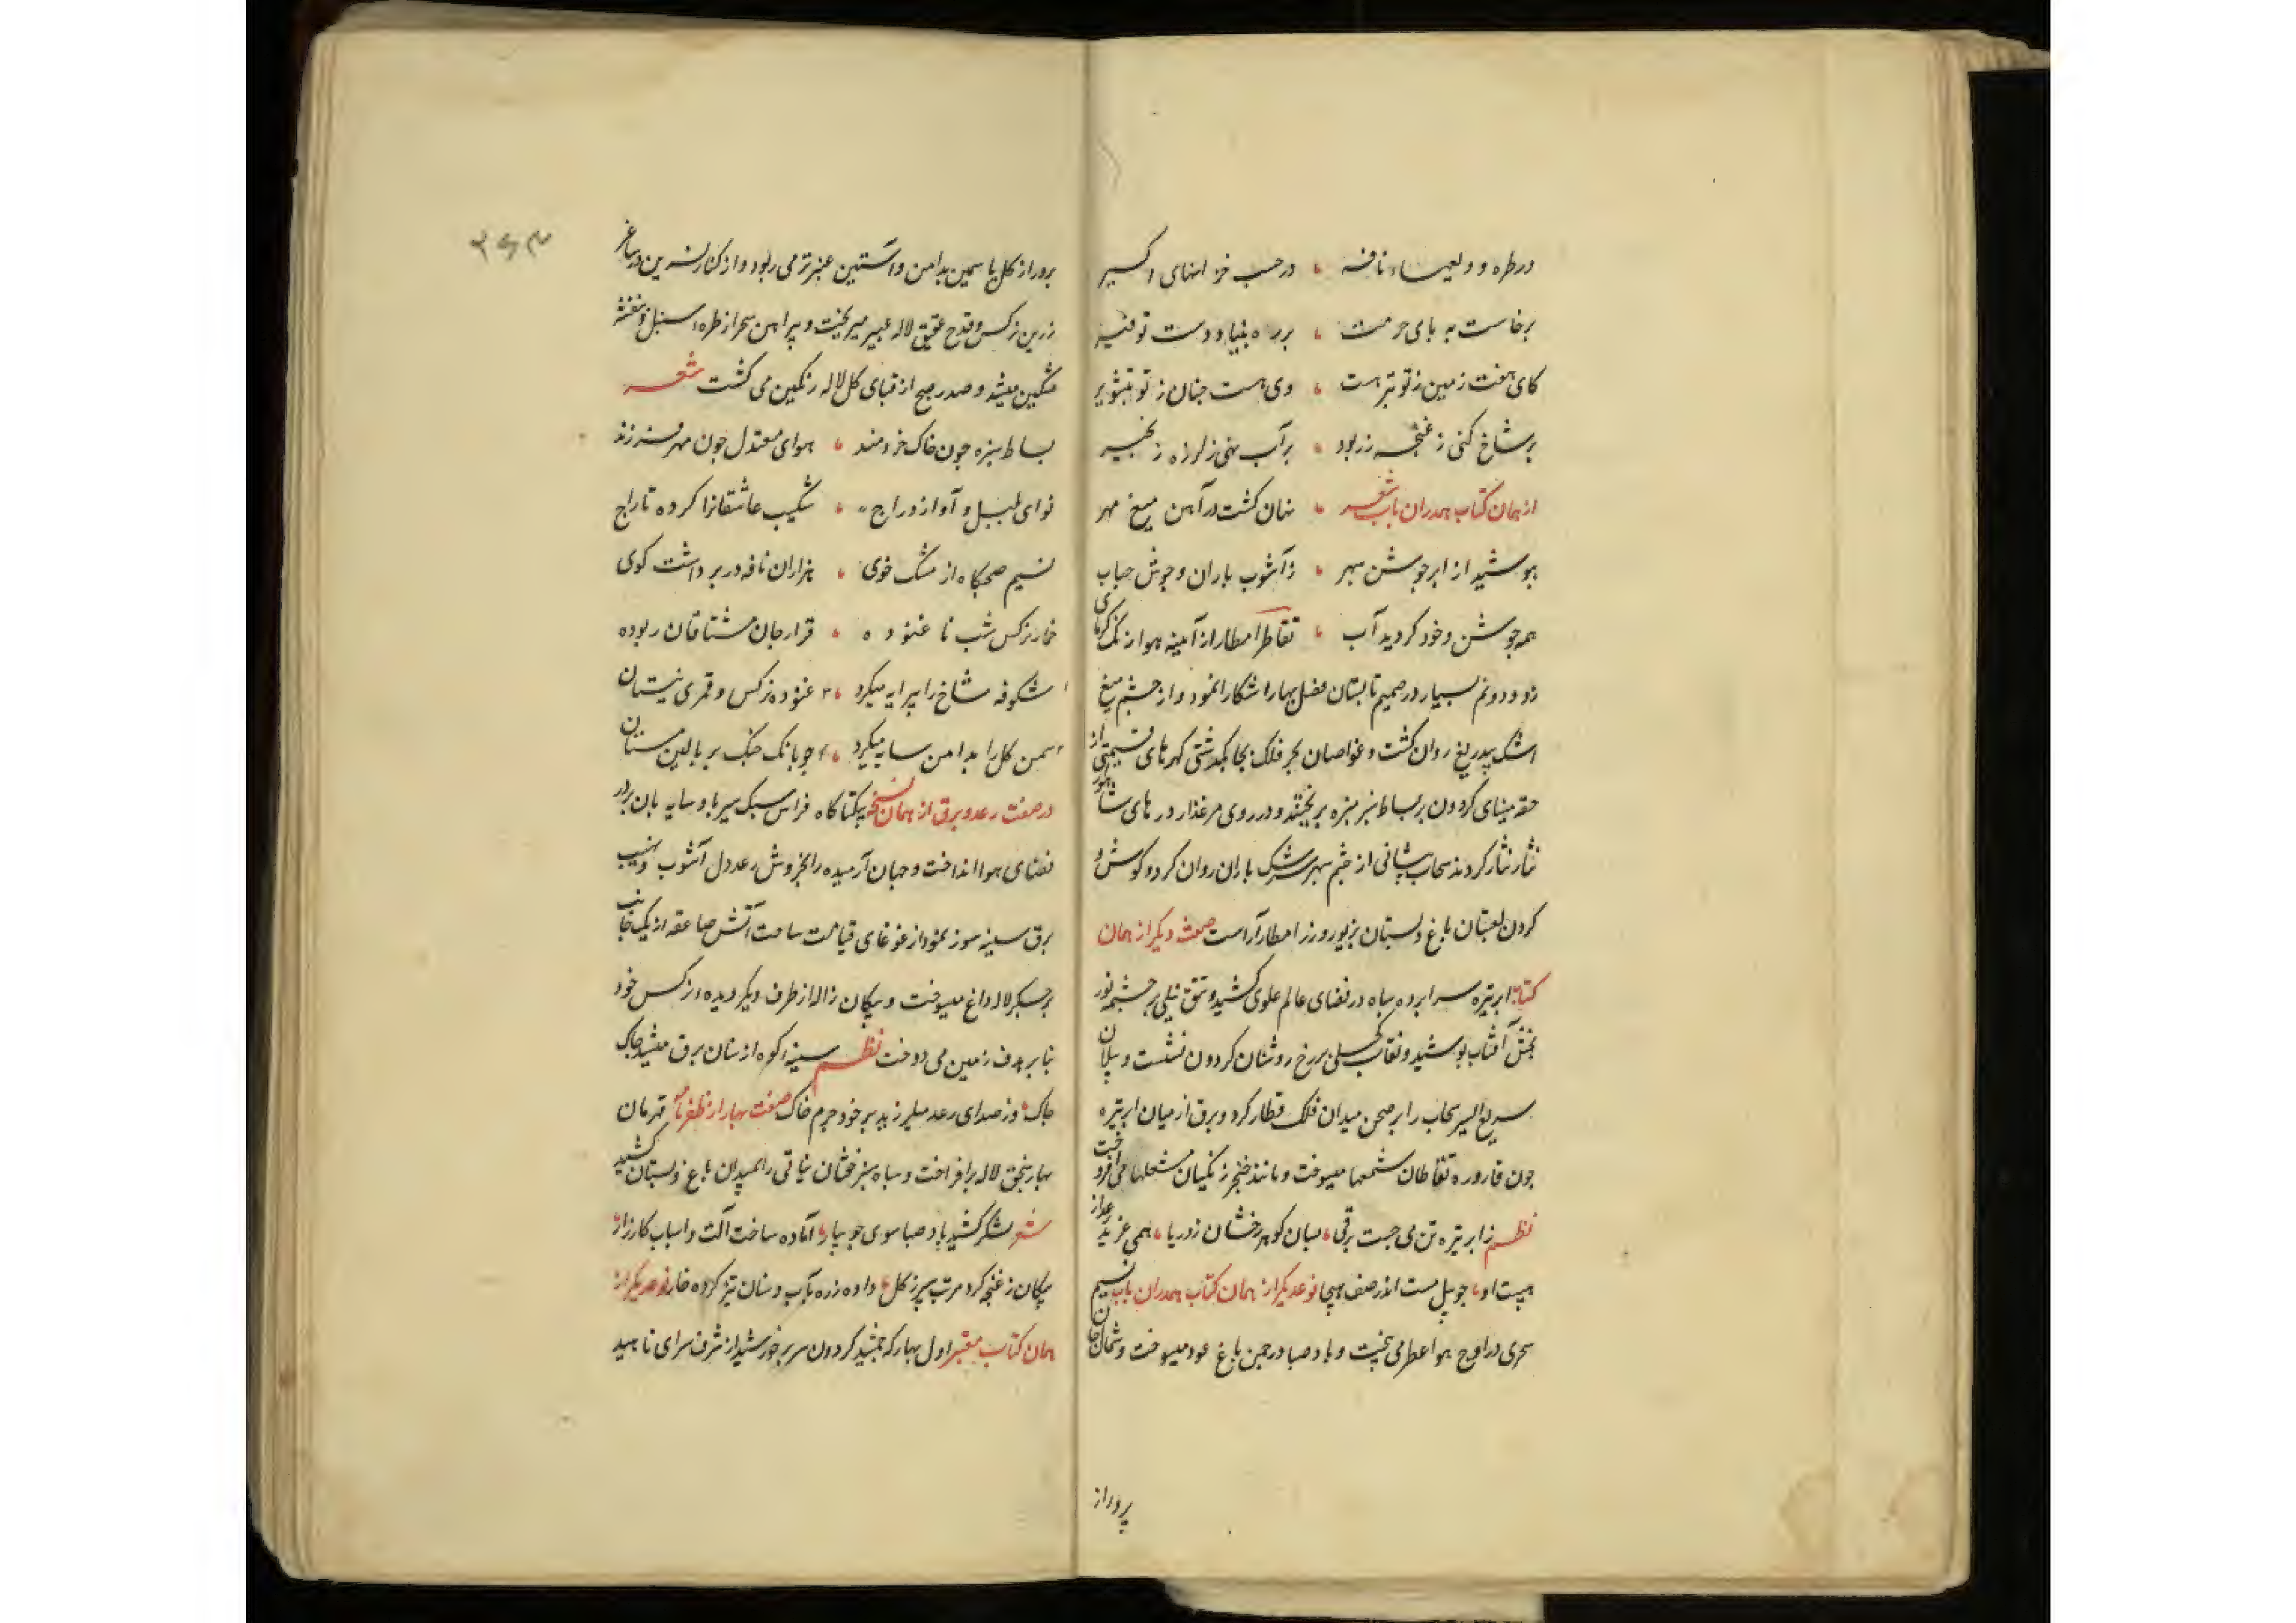 در طره دو ولعهاء نافه در جیب خزانهای اکسیر
برخاست به پای حرمت بر راه بنیاد دست توقیر
کای هفت زمین ز تو وی هست جنان ز تو بتشویر
بر شاخ کنی ز غنچه زر بود بر آب نهی ز لرزه زنجیر
از همان کتاب همدران باب شعر نهان کشت در آهن میغ مهر
بپوشید از ابر جوشن سپهر ز آشوب باران و جوش حباب
همه جوشن و خود کردید آب تقاطر امطار از آینه هوا زنک کرمای
زدود و نم بسیار در صمیم تابستان فصل بهار اشکارا نمود و از چشم میغ
اشک بیدریغ روان کشت و غواصان بحر فلک بجای کهرهای قیمتی از
حقه مینای کردون بر بساط سبز سبزه بریختند و در روی مرغزار درهای شاهوار
نثار نثار کردند سحاب از چشم سپهر سرشک باران روان کرد و کوش و
کردن لعبتان باغ و بستان بزیور و زر امطار آراست صفت دیکر از همان
کتاب ابر تیره سراپرده سیاه در فضای عالم علوی کشید و تتق نیلی بر چشمه نور
بخش آفتاب پوشید و نقاب کحلی بر رخ روشنان کردون نشست و پیلان
سریع السیر سحاب را بر صحن میدان فلک قطار کرد و برق از میان ابر تیره
چون قاروره نفاطان شمعها میسوخت و مانند خنجر زنکیان مشعلها می افروخت
نظم ز ابر تیره تن می جست برقی میان کوهر رخشان ز دریا همی غرید رعد از
هیبت او چو پیل مست اندر صف هیجا نوع دیکر از همان کتاب همدران باب نسیم
سحری در اوج هوا عطر می بیخت و باد صبا در چمن باغ عود میسوخت و شمال جان
پرور از
پرور از کل یاسمین بدامن و آستین عنبر تر می ربود و از کنار نسرین در ساغر
زرین نرکس و قدح عقیق لاله عبیر میریخت و پیراهن سحر از طره سنبل و بنفشه
مشکین میشد و صدر صبح از قبای کل لاله رنکین می کشت شعر
بساط سبزه چون خاک خردمند هوای معتدل چون مهر فرزند
نوای بلبل و آواز دراج شکیب عاشقانرا کرده تاراج
نسیم صبحکاه از مشک خوی هزاران نافه در بر داشت کوی
خمار نرکس شب نا غنوده قرار جان مشتاقان ربوده
شکوفه شاخ را پیرایه میکرد غنوده نرکس و قمری نیستان
سمن کل را بدامن سایه میکرد چو بانک چنک بر بالین مستان
در صفت رعد و برق از همان نسخه یکتا کاه فراس سبک سیر باد سایه بان بر در
فضای هوا انداخت و جهان آرمیده را بخروش رعد دل آشوب و نهیب
برق سینه سوز نمودار غوغای قیامت ساخت آتش صاعقه از یک جانب
بر جیکر لاله داغ میسوخت و پیکان ژاله از طرف دیکر دیده نرکس خود
بنا بر هدف زمین می دوخت نظم سینه کوه از سنان برق میشد چاک
چاک وز صدای رعد میلرزید بر خود جرم خاک صفت بهار از ظفرنامه قهرمان
بهار سنجق لاله برافراخت و سپاه سبز خفتان نباتی را بمیدان باغ و بستان کشید
شعر لشکر کشید باد صبا سوی جویبار آماده ساخت آلت و اسباب کارزار
پیکان ز غنچه کرد مرتب سپر ز کل داده زره بآب و سنان تیز کرده خار نوع دیکر از
همان کتاب معتبر اول بهار که جمشید کردون سریر خورشید از شرف سرای ناهید